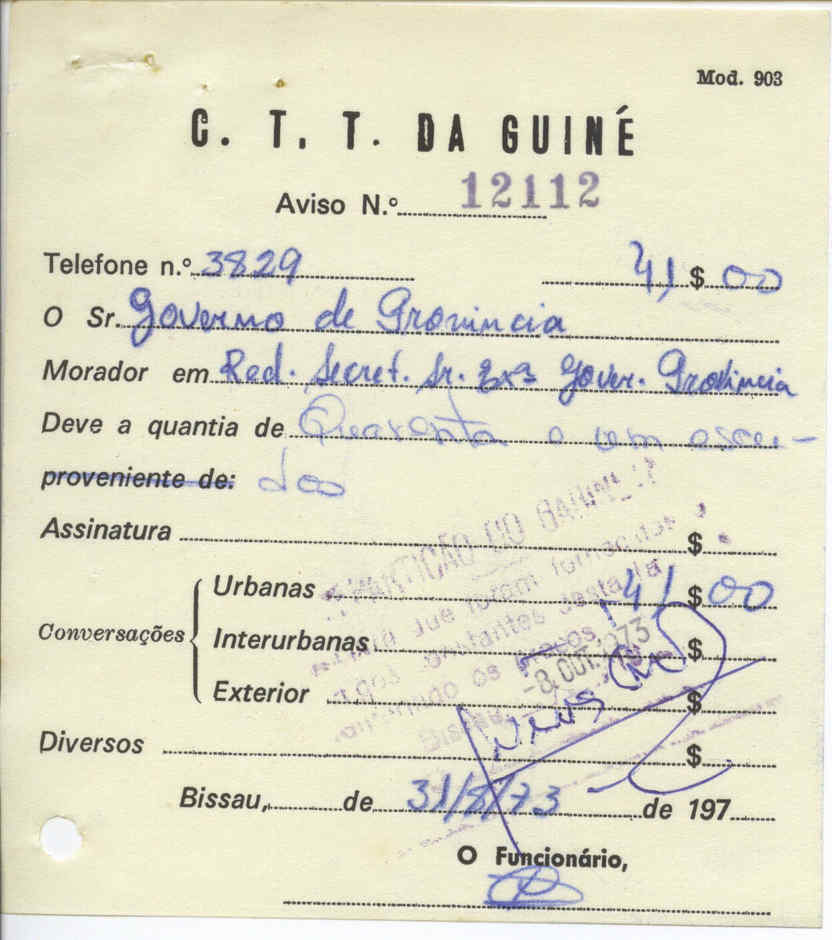 Mod. 903
C. T. T. DA GUINÉ
Aviso N.º 12112
Telefone n.º 3829 41 $ 00
O Sr. Governo de Provincia
Morador em Red. Secret. Sr. Exª Gover. Provincia
Deve a quantia de Quarenta e um escu-
proveniente de: dos
Assinatura $
Urbanas 41 $ 00
Conversações Interurbanas $
Exterior $
Diversos $
REPARTIÇÃO DO GABINETE
que foram fornecidos
constantes desta
os preços
Bissau, -8. OUT. 1973
Bissau, de 31/8/73 de 197
O Funcionário,